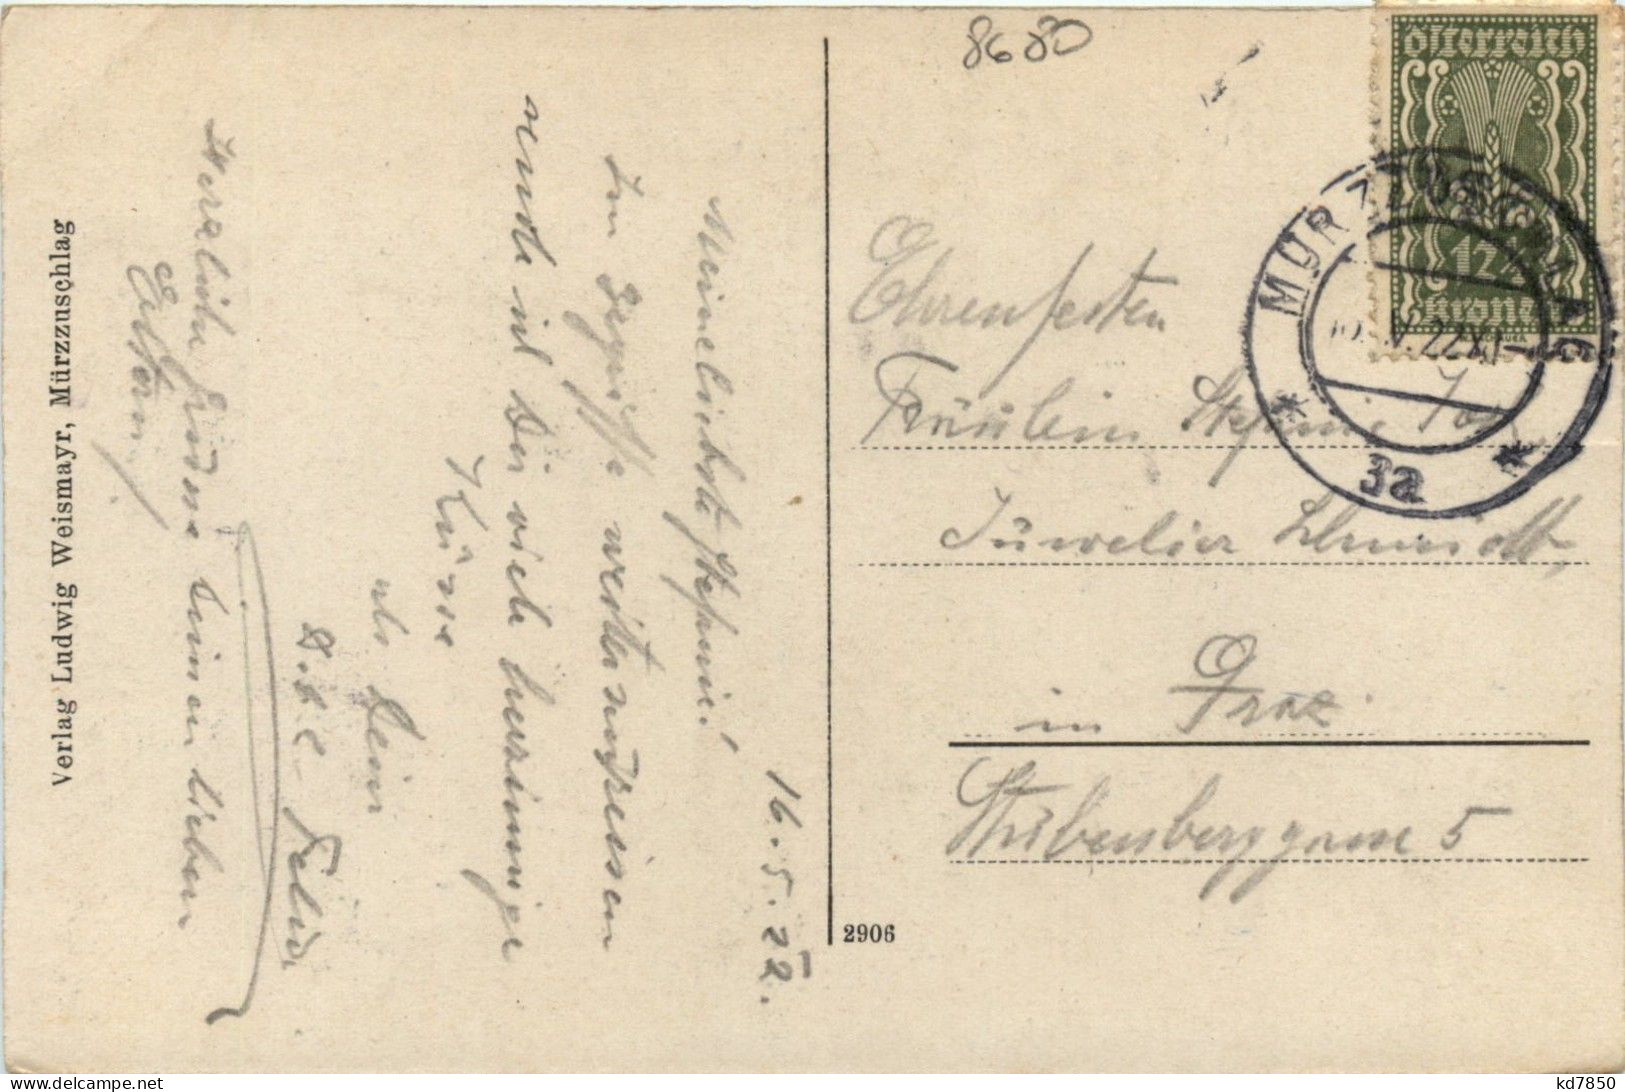 8680
Österreich
12½
Kronen
MÜRZZUSCHLAG
V. 22 XI
3a
Ehrenfesten
Fräulein Stefanie
Juwelier Schmidt,
in Graz
Stubenberggasse 5
2906
16. 5. 22.
Meinelichste Stefanie!
Im Begriffe weiterzureisen
sende ich Dir viele herzinnige
Küsse
als Dein
Felix
Herzliche Grüsse Deinen lieben
Eltern,
Verlag Ludwig Weismayr, Mürzzuschlag
kd7850